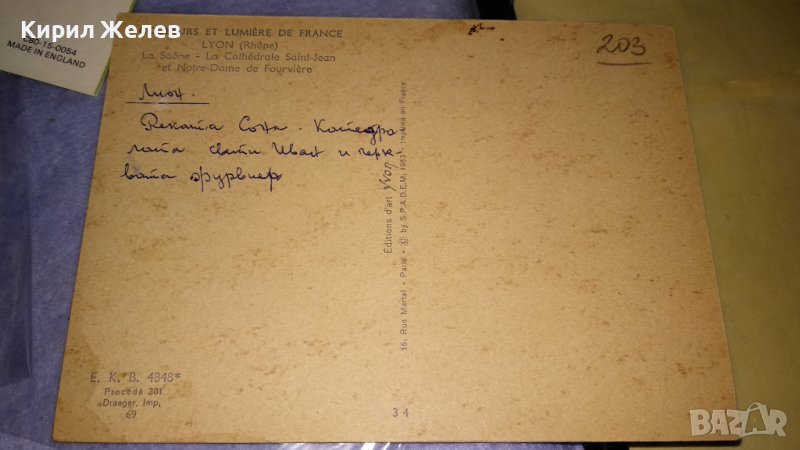 Кирил Желев
C80-15-0054
MADE IN ENGLAND
URS ET LUMIÈRE DE FRANCE
LYON (Rhône)
La Saône - La Cathédrale Saint-Jean
et Notre-Dame de Fourvière
203
Лион.
Реката Сона. Катедра
лата Свети Иван и черк
вата Фурвиер
Éditions d'art Yvon
15, Rue Martel - Paris - © by S.P.A.D.E.M. 1963 - Imprimé en France
E. K. B. 4848*
Procédé 301
Draeger, Imp.
69
34
BAZAR